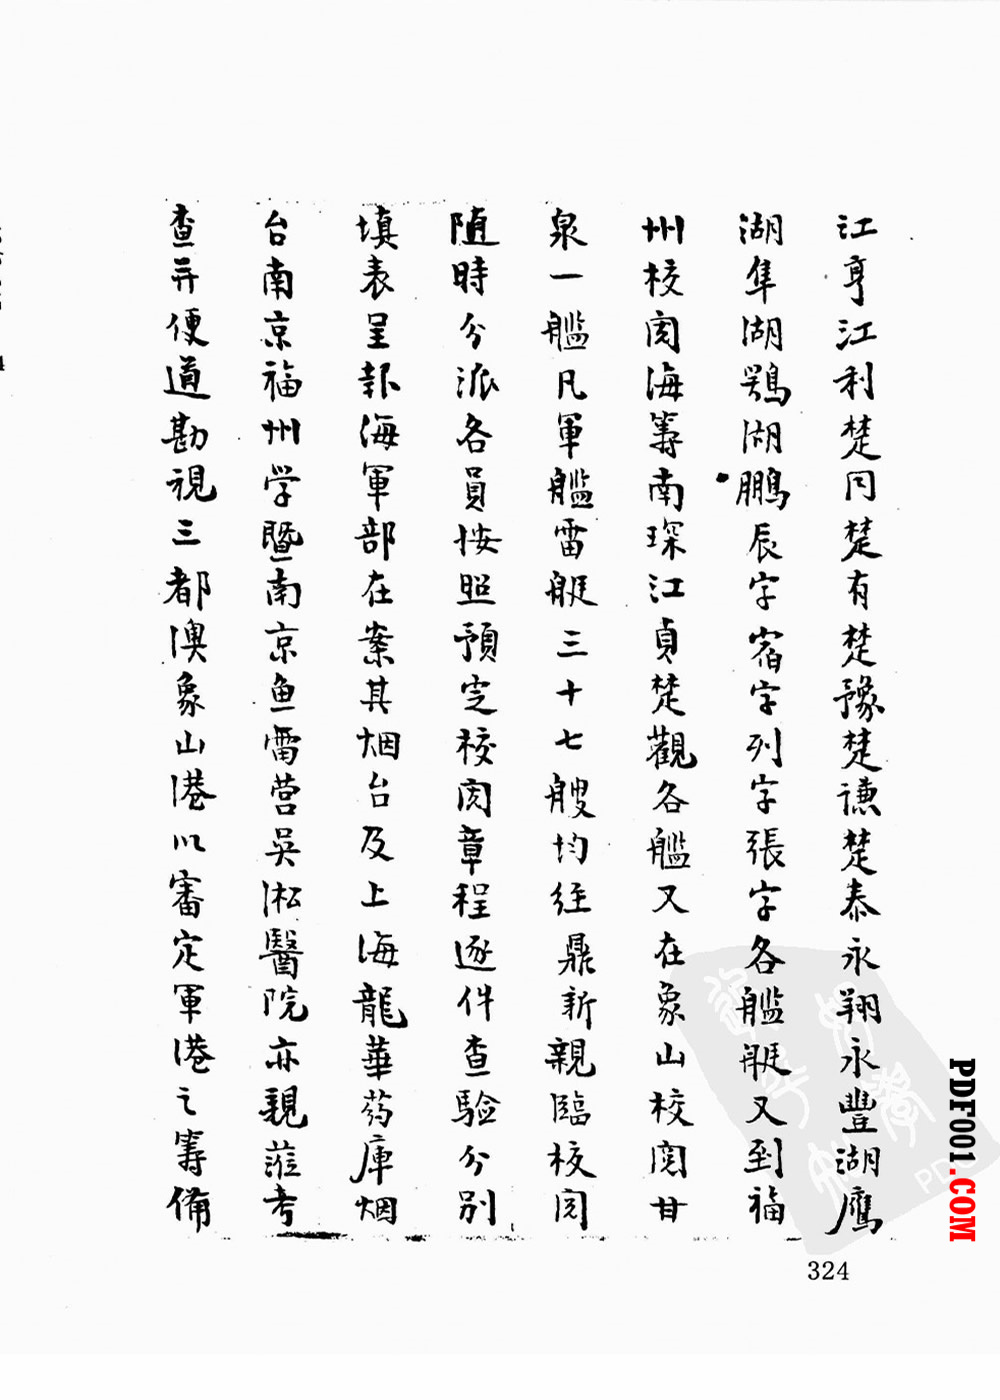 江亨江利楚同楚有楚豫楚謙楚泰永翔永豐湖鷹
湖隼湖鶚湖鵬辰字宿字列字張字各艦艇又到福
州校閱海籌南琛江貞楚觀各艦又在象山校閱甘
泉一艦凡軍艦雷艇三十七艘均經鼎新親臨校閱
随時分派各員按照預定校閱章程逐件查驗分別
填表呈報海軍部在案其烟台及上海龍華药庫烟
台南京福州学暨南京鱼雷营吳淞醫院亦親蒞考
查并便道勘視三都澳象山港以審定軍港之籌備
324
PDF001.COM